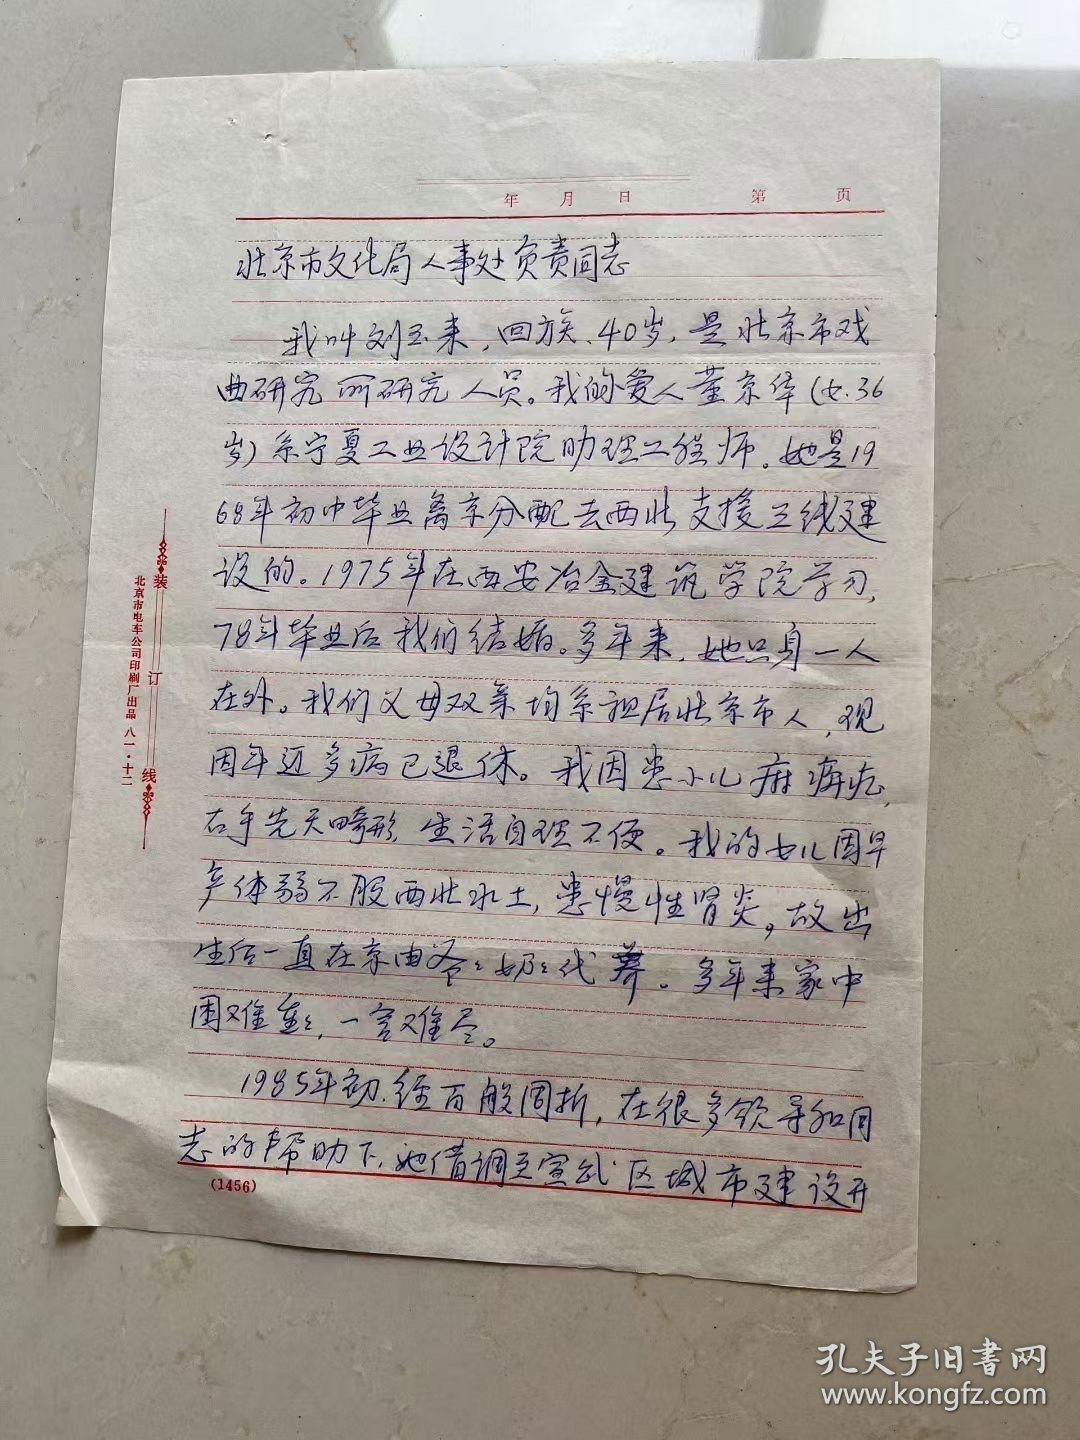 年 月 日 第 页
北京市文化局人事处负责同志
我叫刘玉来，回族、40岁，是北京市戏
曲研究所研究人员。我的爱人董京华（女.36
岁）系宁夏工业设计院助理工程师。她是19
68年初中毕业离京分配去西北支援三线建
设的。1975年在西安冶金建筑学院学习，
78年毕业后我们结婚。多年来，她只身一人
在外。我们父母双亲均系祖居北京市人，现
因年迈多病已退休。我因患小儿麻痹症，
右手先天畸形，生活自理不便。我的女儿因早
产体弱不服西北水土，患慢性肾炎，故出
生后一直在京由爷々奶々代养。多年来家中
困难重々，一言难尽。
1985年初.经百般周折，在很多领导和同
志的帮助下，她借调至宣武区城市建设开
(1456)
装订线
北京市电车公司印刷厂出品 八一·十二
孔夫子旧书网
www.kongfz.com